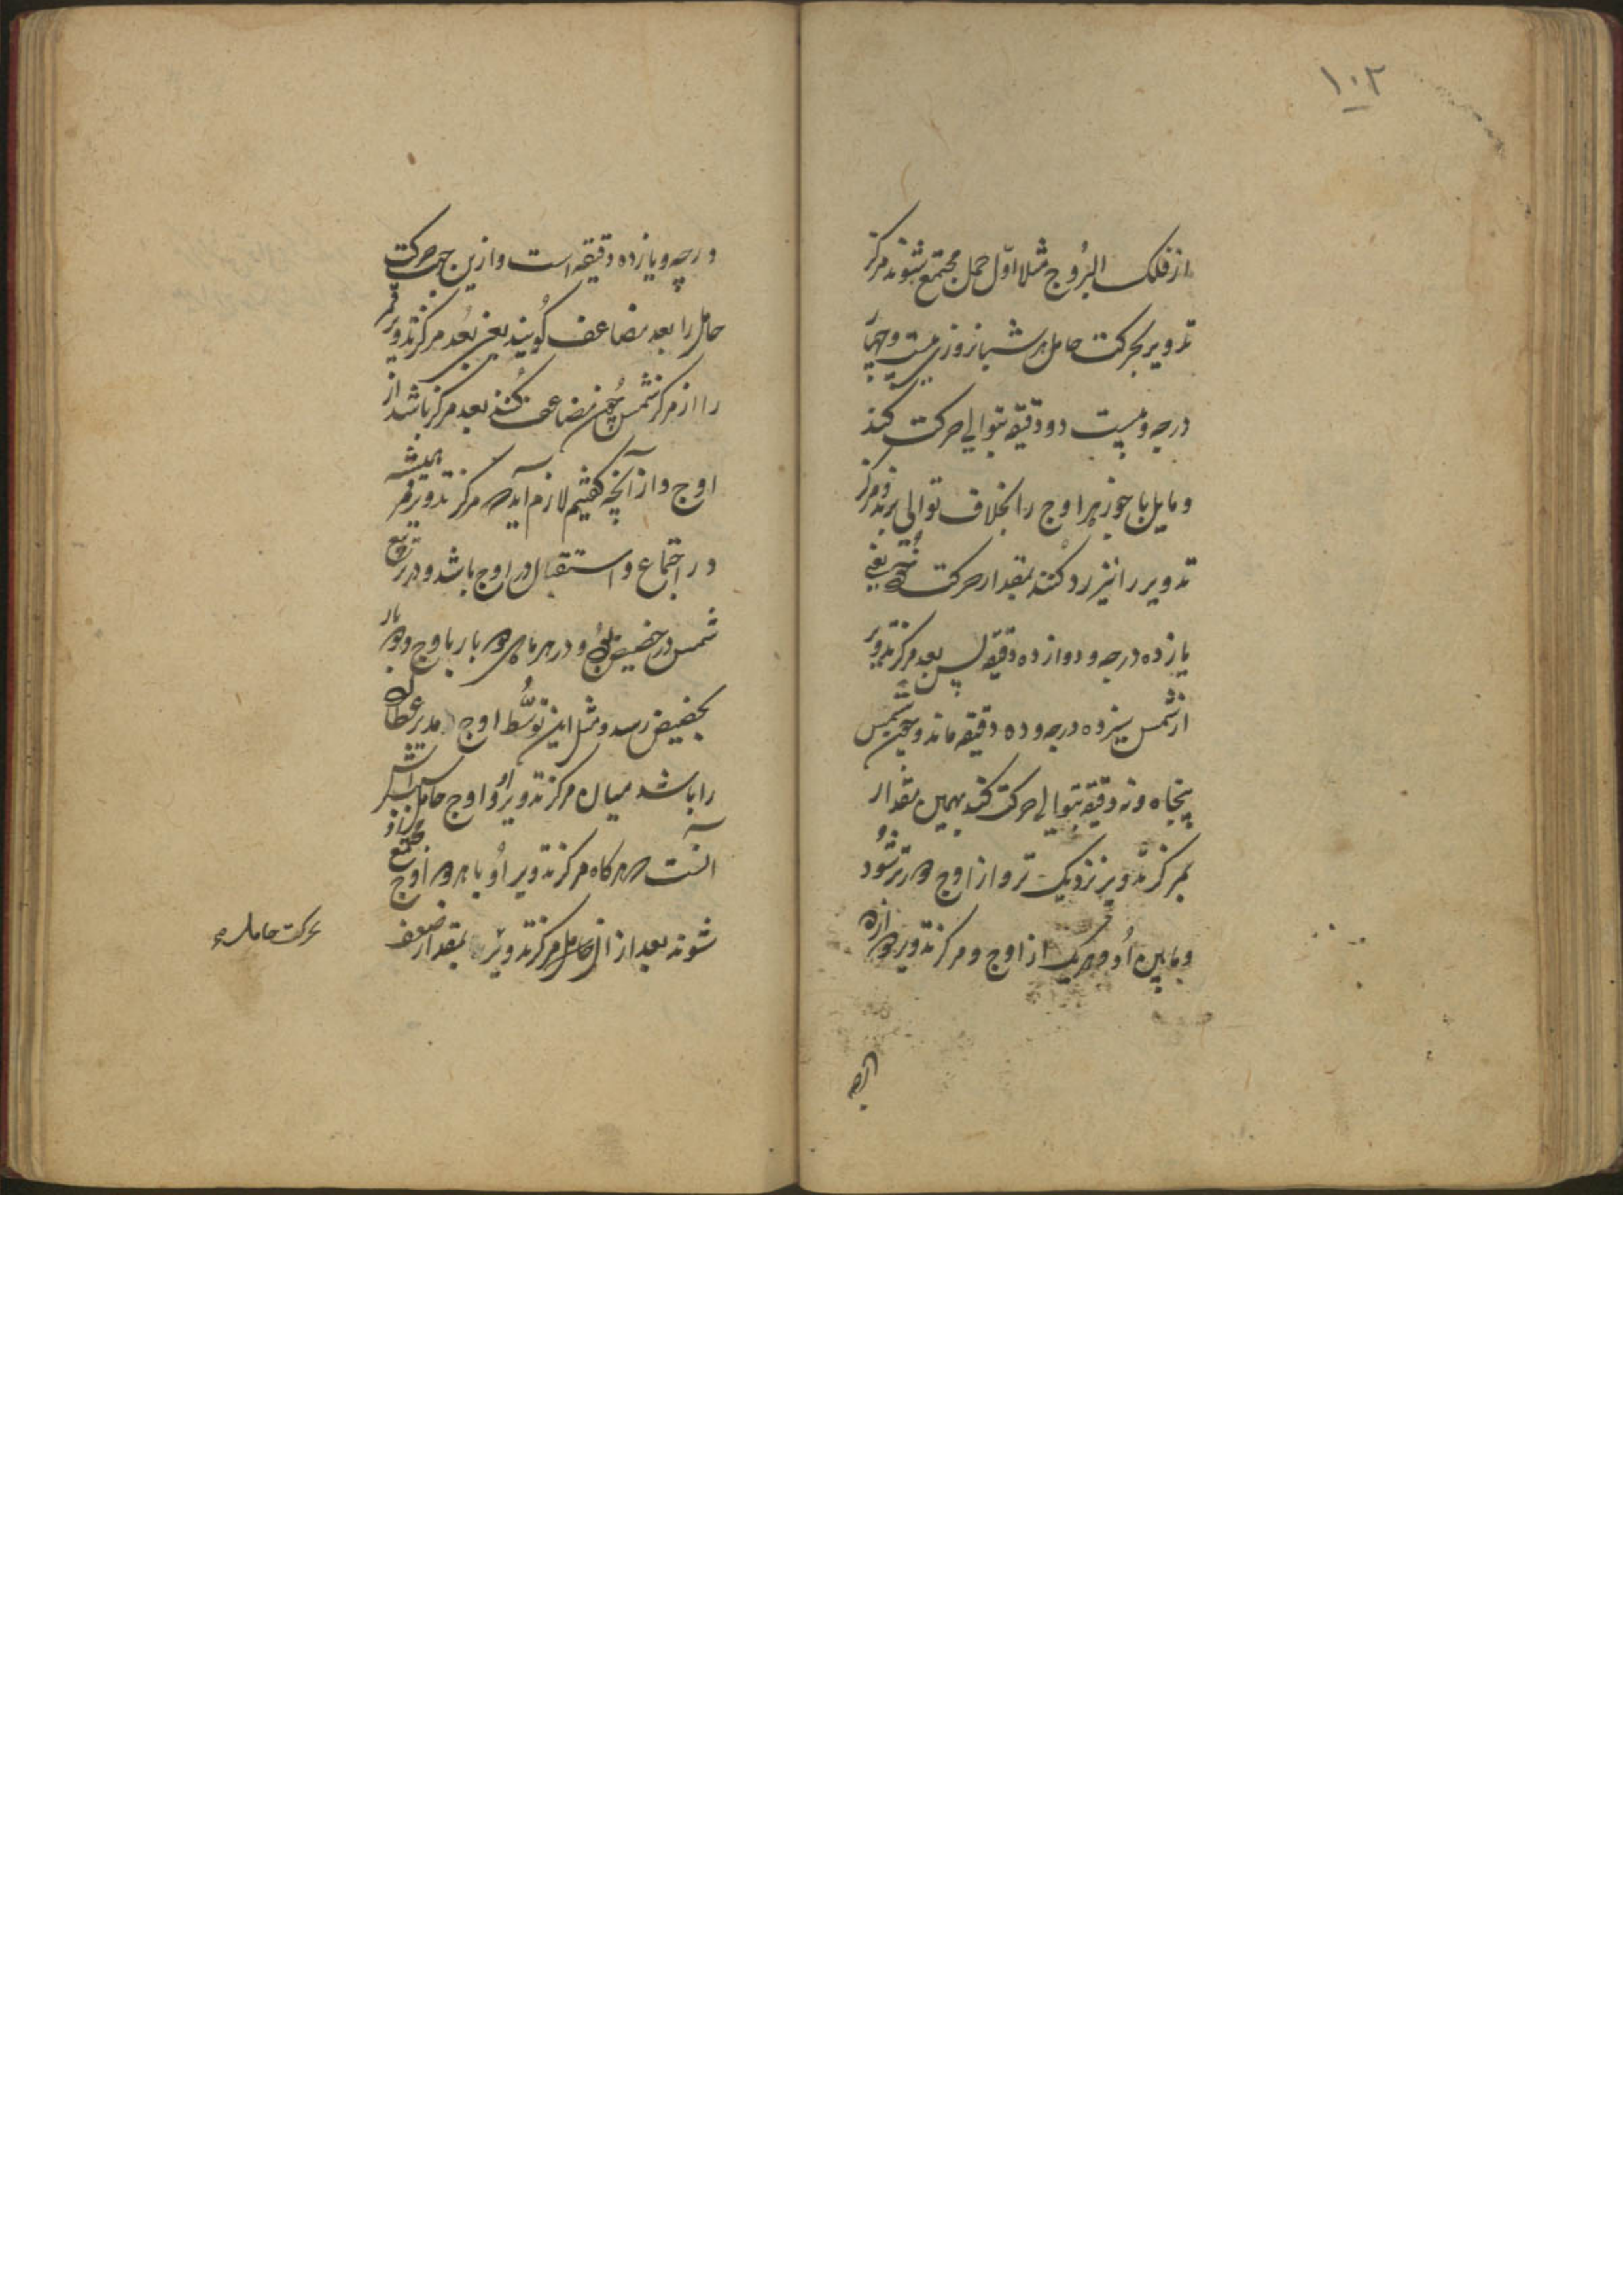 ۱۰۲
از فلک البرُوج مثلا اوّل حمل مجتمع شوند مرکز
تدویر بحرکت حامل هر شبانروزی بیست و چهار
درجه و بیست دو دقیقه بتوالی حرکت کند
و مایل با جوزهر اوج را بخلاف توالی برند و مرکز
تدویر را نیز رد کنند بمقدار حرکت خود یعنی
یازده درجه و دوازده دقیقه پس بعد مرکز تدویر
از شمس سیزده درجه و ده دقیقه ماند و چون شمس
پنجاه و نه دقیقه بتوالی حرکت کند بهمین مقدار
بمرکز تدویر نزدیک تر و از اوج دورتر شود
و مابین او و هر یک از اوج و مرکز تدویر دوازده
درجه و یازده دقیقه است و ازین جهت حرکت
حامل را بعد مضاعف گویند یعنی بُعد مرکز تدویر قمر
را از مرکز شمس چون مضاعف کنند بعد مرکز باشد از
اوج و از آنچه گفتیم لازم آید که مرکز تدویر قمر همیشه
در اجتماع و استقبال در اوج باشد و در تربیع
شمس در حضیض بود و در هر ماهی دو بار باوج و دو بار
بحضیض رسد و مثل این توسُّط اوج مدیر عطارد
را باشد میان مرکز تدویر او و اوج حامل
آنست که هرگاه مرکز تدویر او با هر دو اوج مجتمع
شوند بعد از آن حامل مرکز تدویر بمقدار ضعف
بحرکت حامل